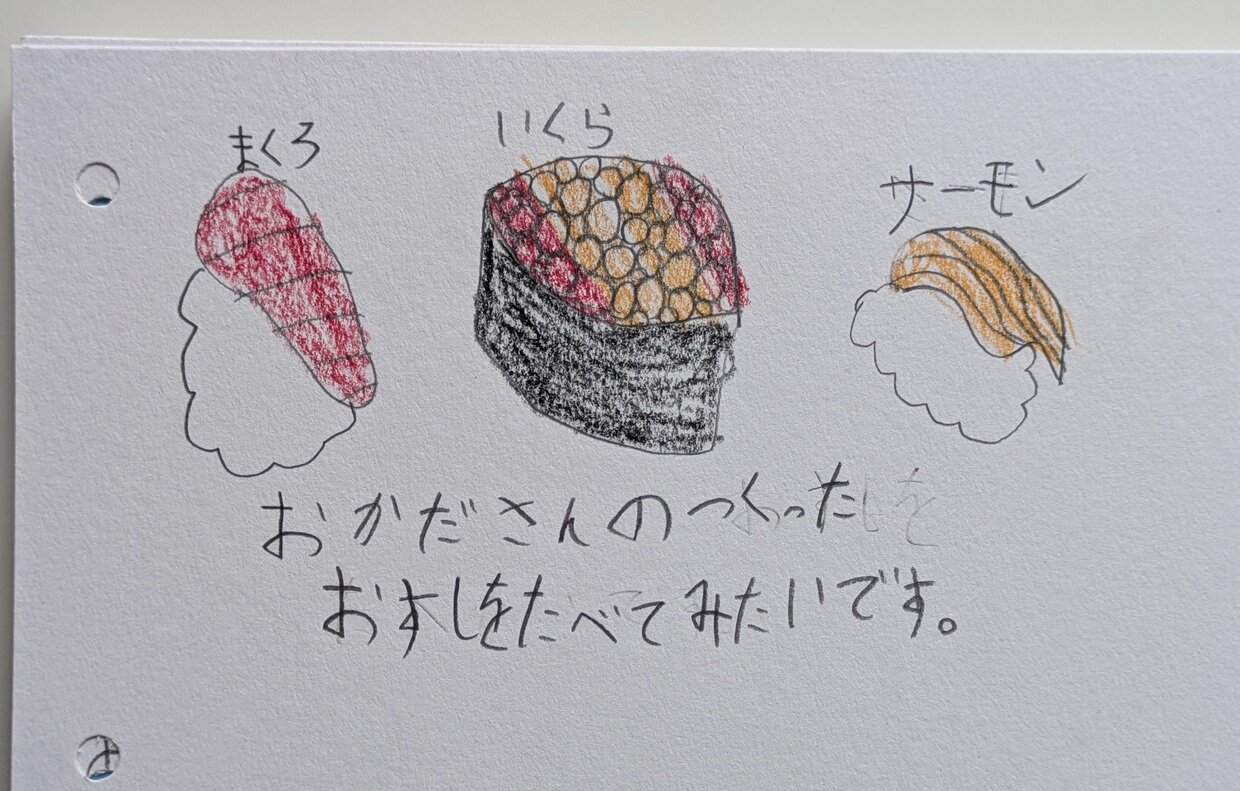 まくろ
いくら
サーモン
おかださんのつくった
おすしをたべてみたいです。